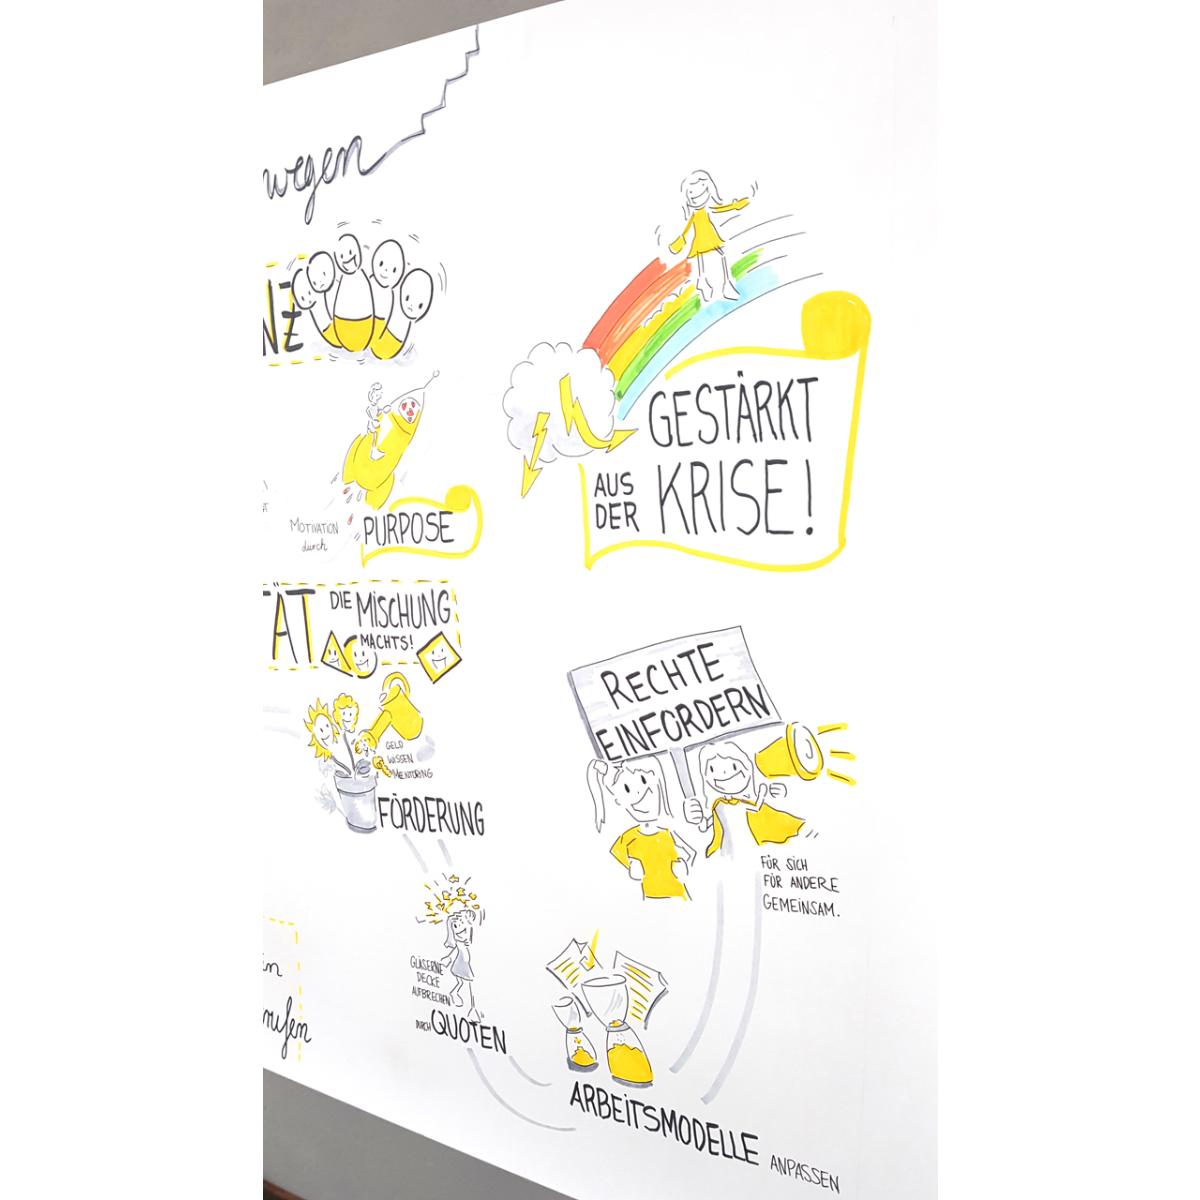 wegen
NZ
GESTÄRKT
AUS DER KRISE!
MOTIVATION
durch
PURPOSE
TÄT DIE MISCHUNG
MACHTS!
RECHTE
EINFORDERN
GELD
WISSEN
MENTORING
FÖRDERUNG
FÜR SICH
FÜR ANDERE
GEMEINSAM.
GLÄSERNE
DECKE
AUFBRECHEN
DURCH QUOTEN
ARBEITSMODELLE
ANPASSEN